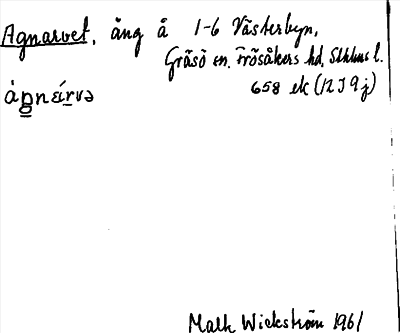 Agnarvet, äng å 1-6 Västerbyn,
Gräsö sn. Frösåkers hd, Sthlms l.
658 ek (12 I 9 j)
Malte Wickström 1961